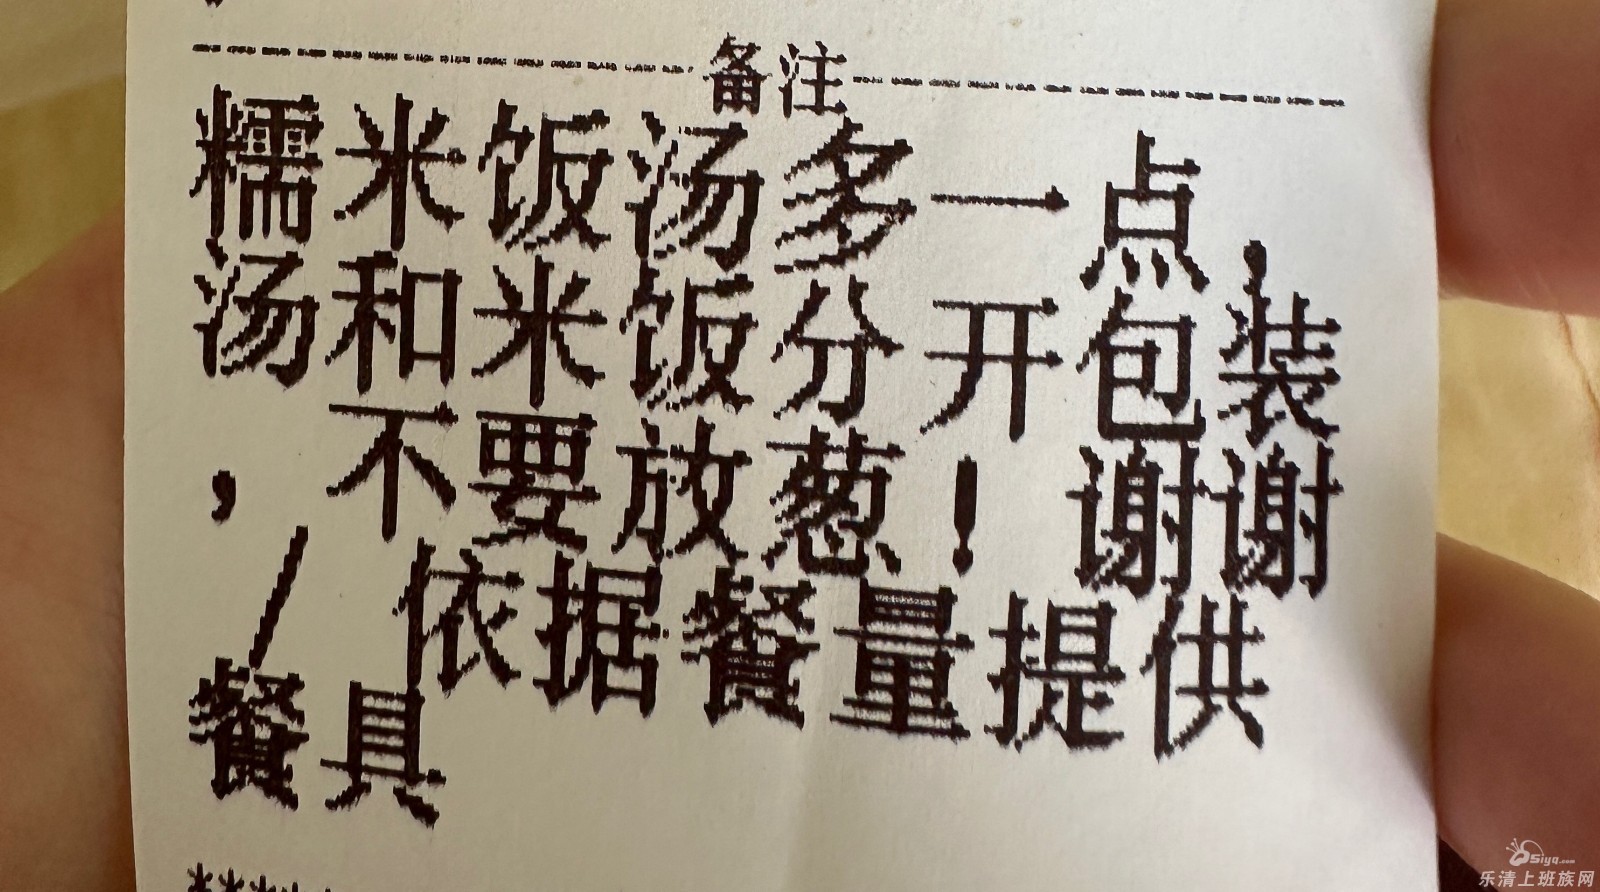 备注
糯米饭汤多一点，
汤和米饭分开包装
，不要放葱！谢谢
/ 依据餐量提供
餐具
Osiyq.com
乐清上班族网